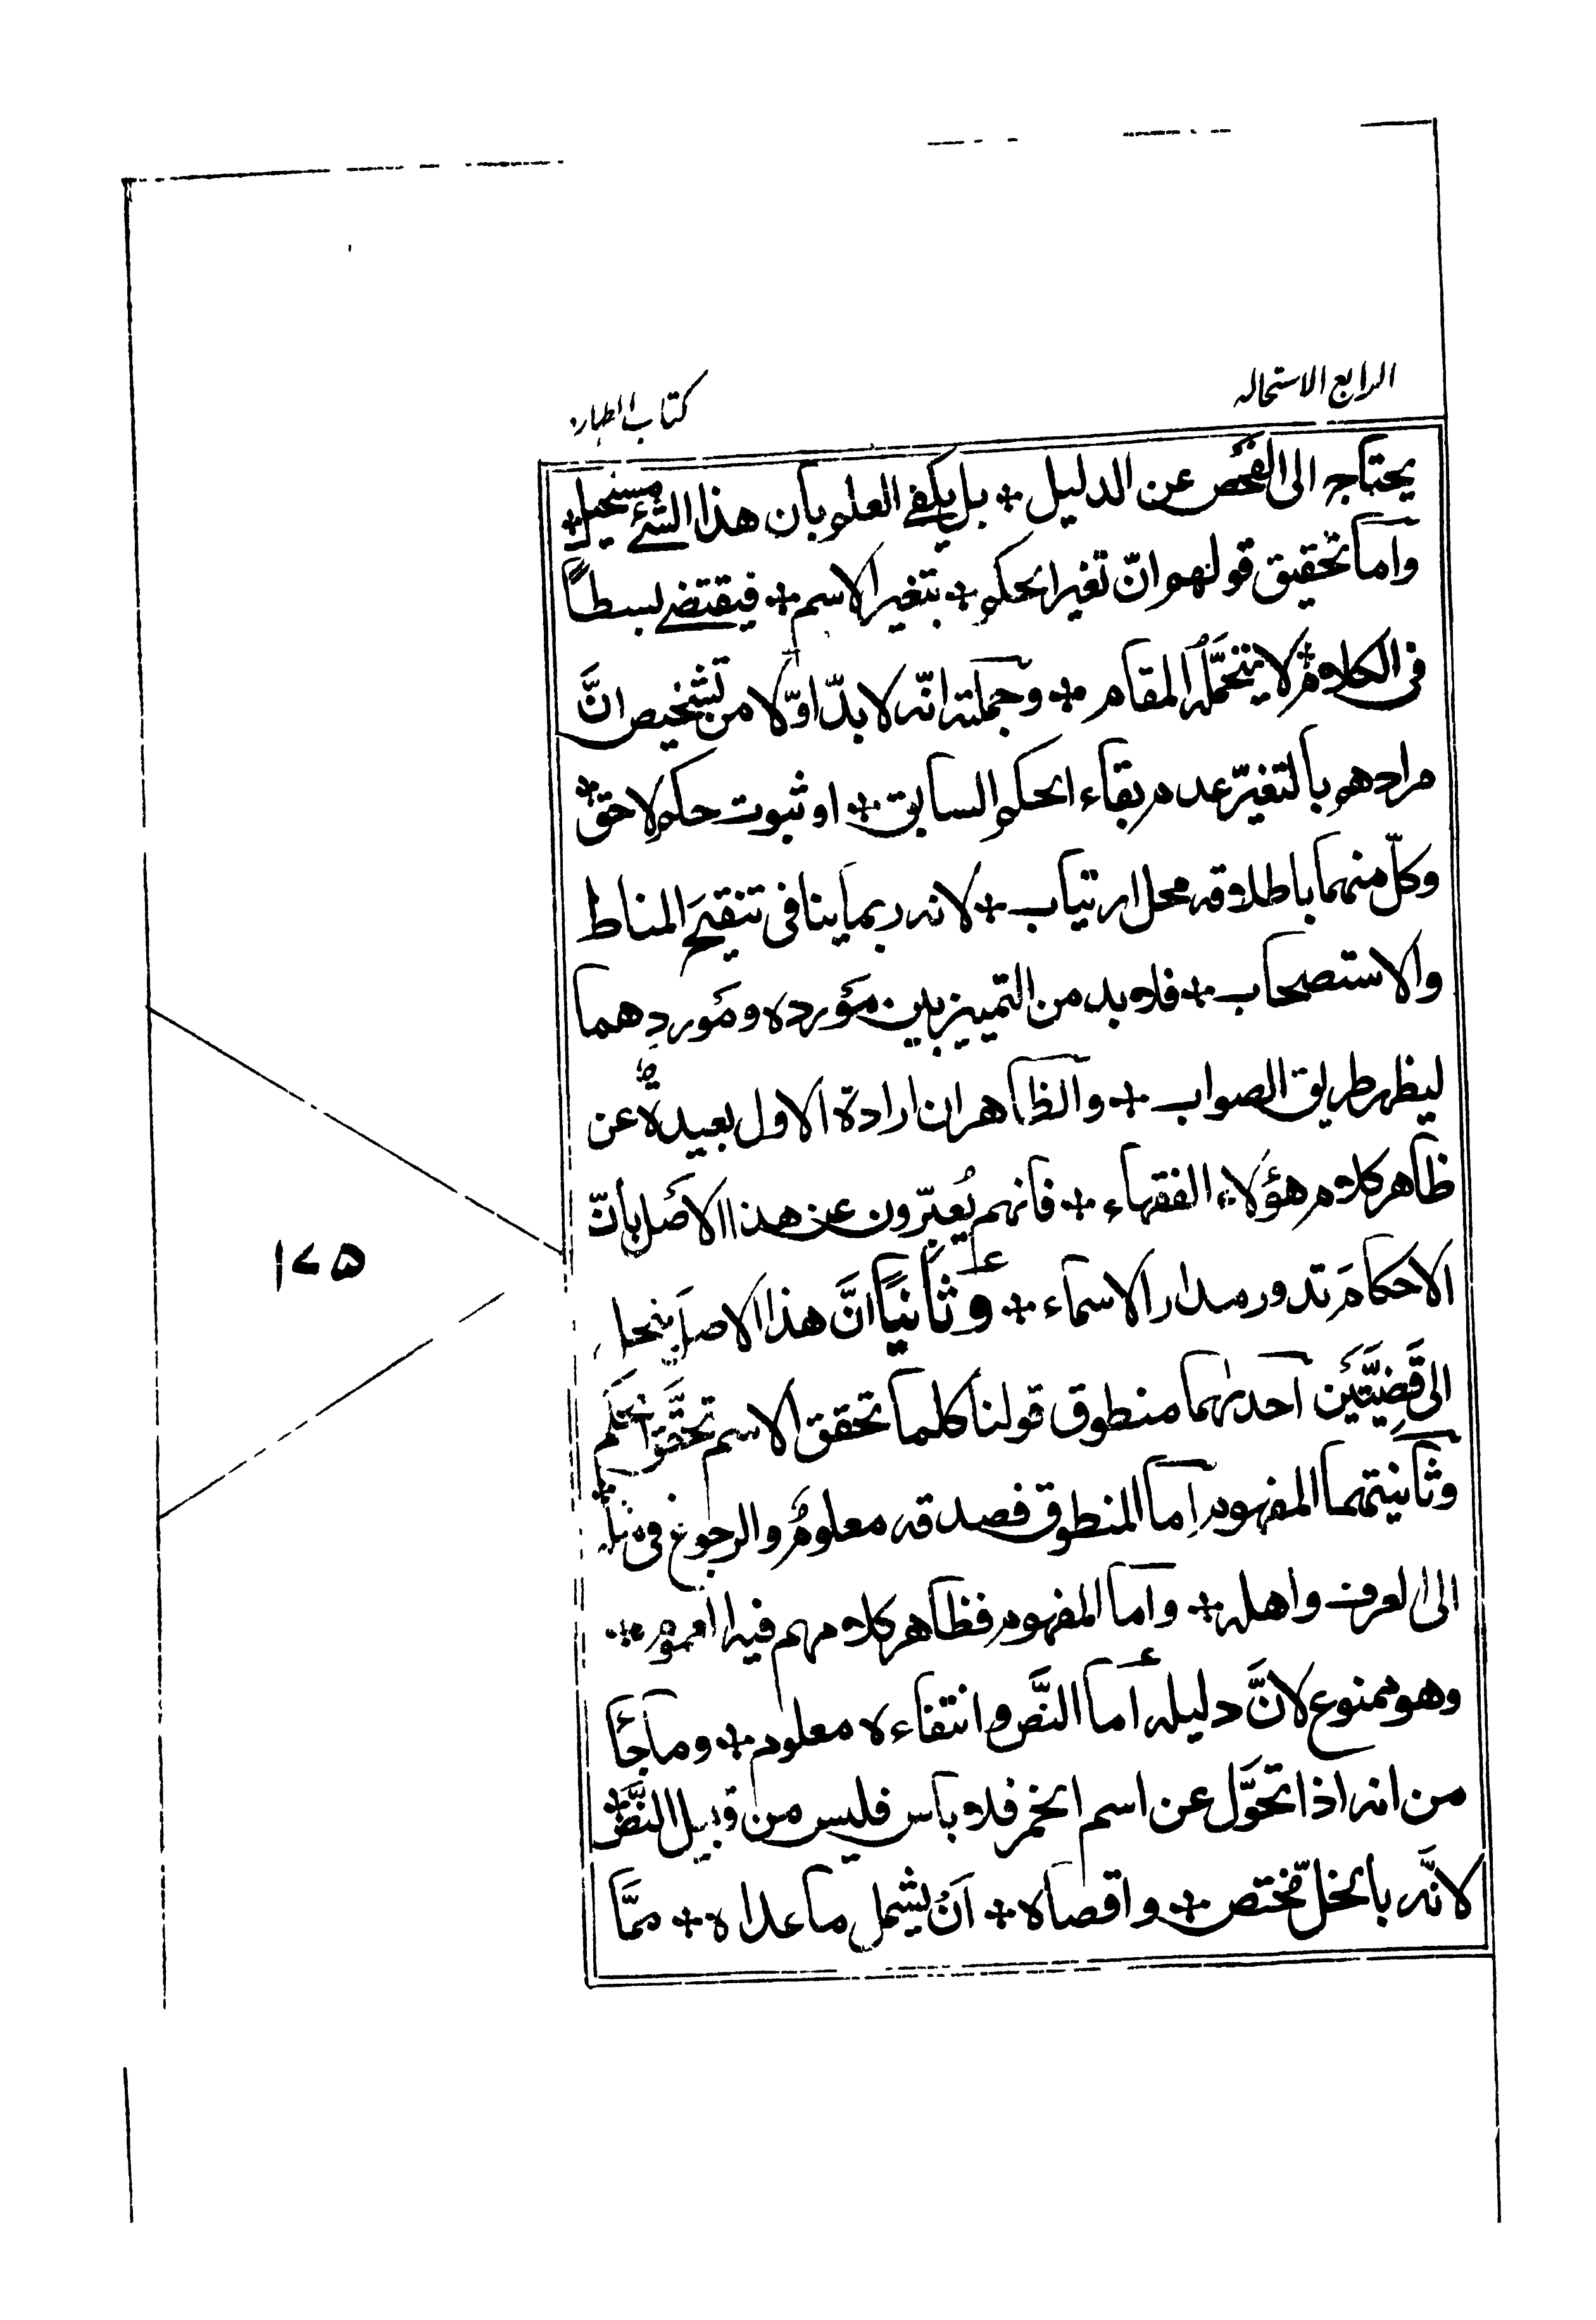 الرابع الاستحاله
كتاب الطهارة
يحتاج الى الفحص عن الدليل ÷ بل يكفي العلم بان هذا الشئ مستحيل ÷
واما تحقيق قولهم انّ تغير الحكم ÷ بتغير الاسم ÷ فيقتضي بسطاً
فى الكلام ÷ لا يتحمّله المقام ÷ وجملته انّه لا بدّ اوّلا من تشخيص انَّ
مرادهم بالتغيّر عدم بقاء الحكم السابق ÷ او ثبوت حكم لاحق ÷
وكلّ منهما باطلاقه محل ارتياب ÷ لانه ربما ينافى تنقيح المناط
والاستصحاب ÷ فلا بد من التمييز بين مَورده ومَوردهما
ليظهر طريق الصواب ÷ والظاهر ان ارادة الاول بعيدة عن
ظاهر كلام هؤلاء الفقهاء ÷ فانهم يُعبّرون عن هذا الاصل بأنّ
الاحكام تدور مدار الاسماء ÷ وثانياً انَّ هذا الاصل ينحل
الى قَضِيَّتَين احدىهما منطوق قولنا كلما تحقق الاسم تحقَّق الحكم
وثانيتهما المفهوم اما المنطوق فصدقه معلومٌ والرجوع فى مثله ÷
الى العرف واهله ÷ واما المفهوم فظاهر كلامهم فيه العموم ÷
وهو ممنوع لانَّ دليله أما النَّص وانتفاءه معلوم ÷ وما جاء
من انه اذا تحوَّل عن اسم الخمر فلا باس فليس من قبيل النَّص ÷
لانّه بالخلّ مختص ÷ واقصاه ÷ اَنْ يشمل ما عداه ÷ ممَّا
١٧٥